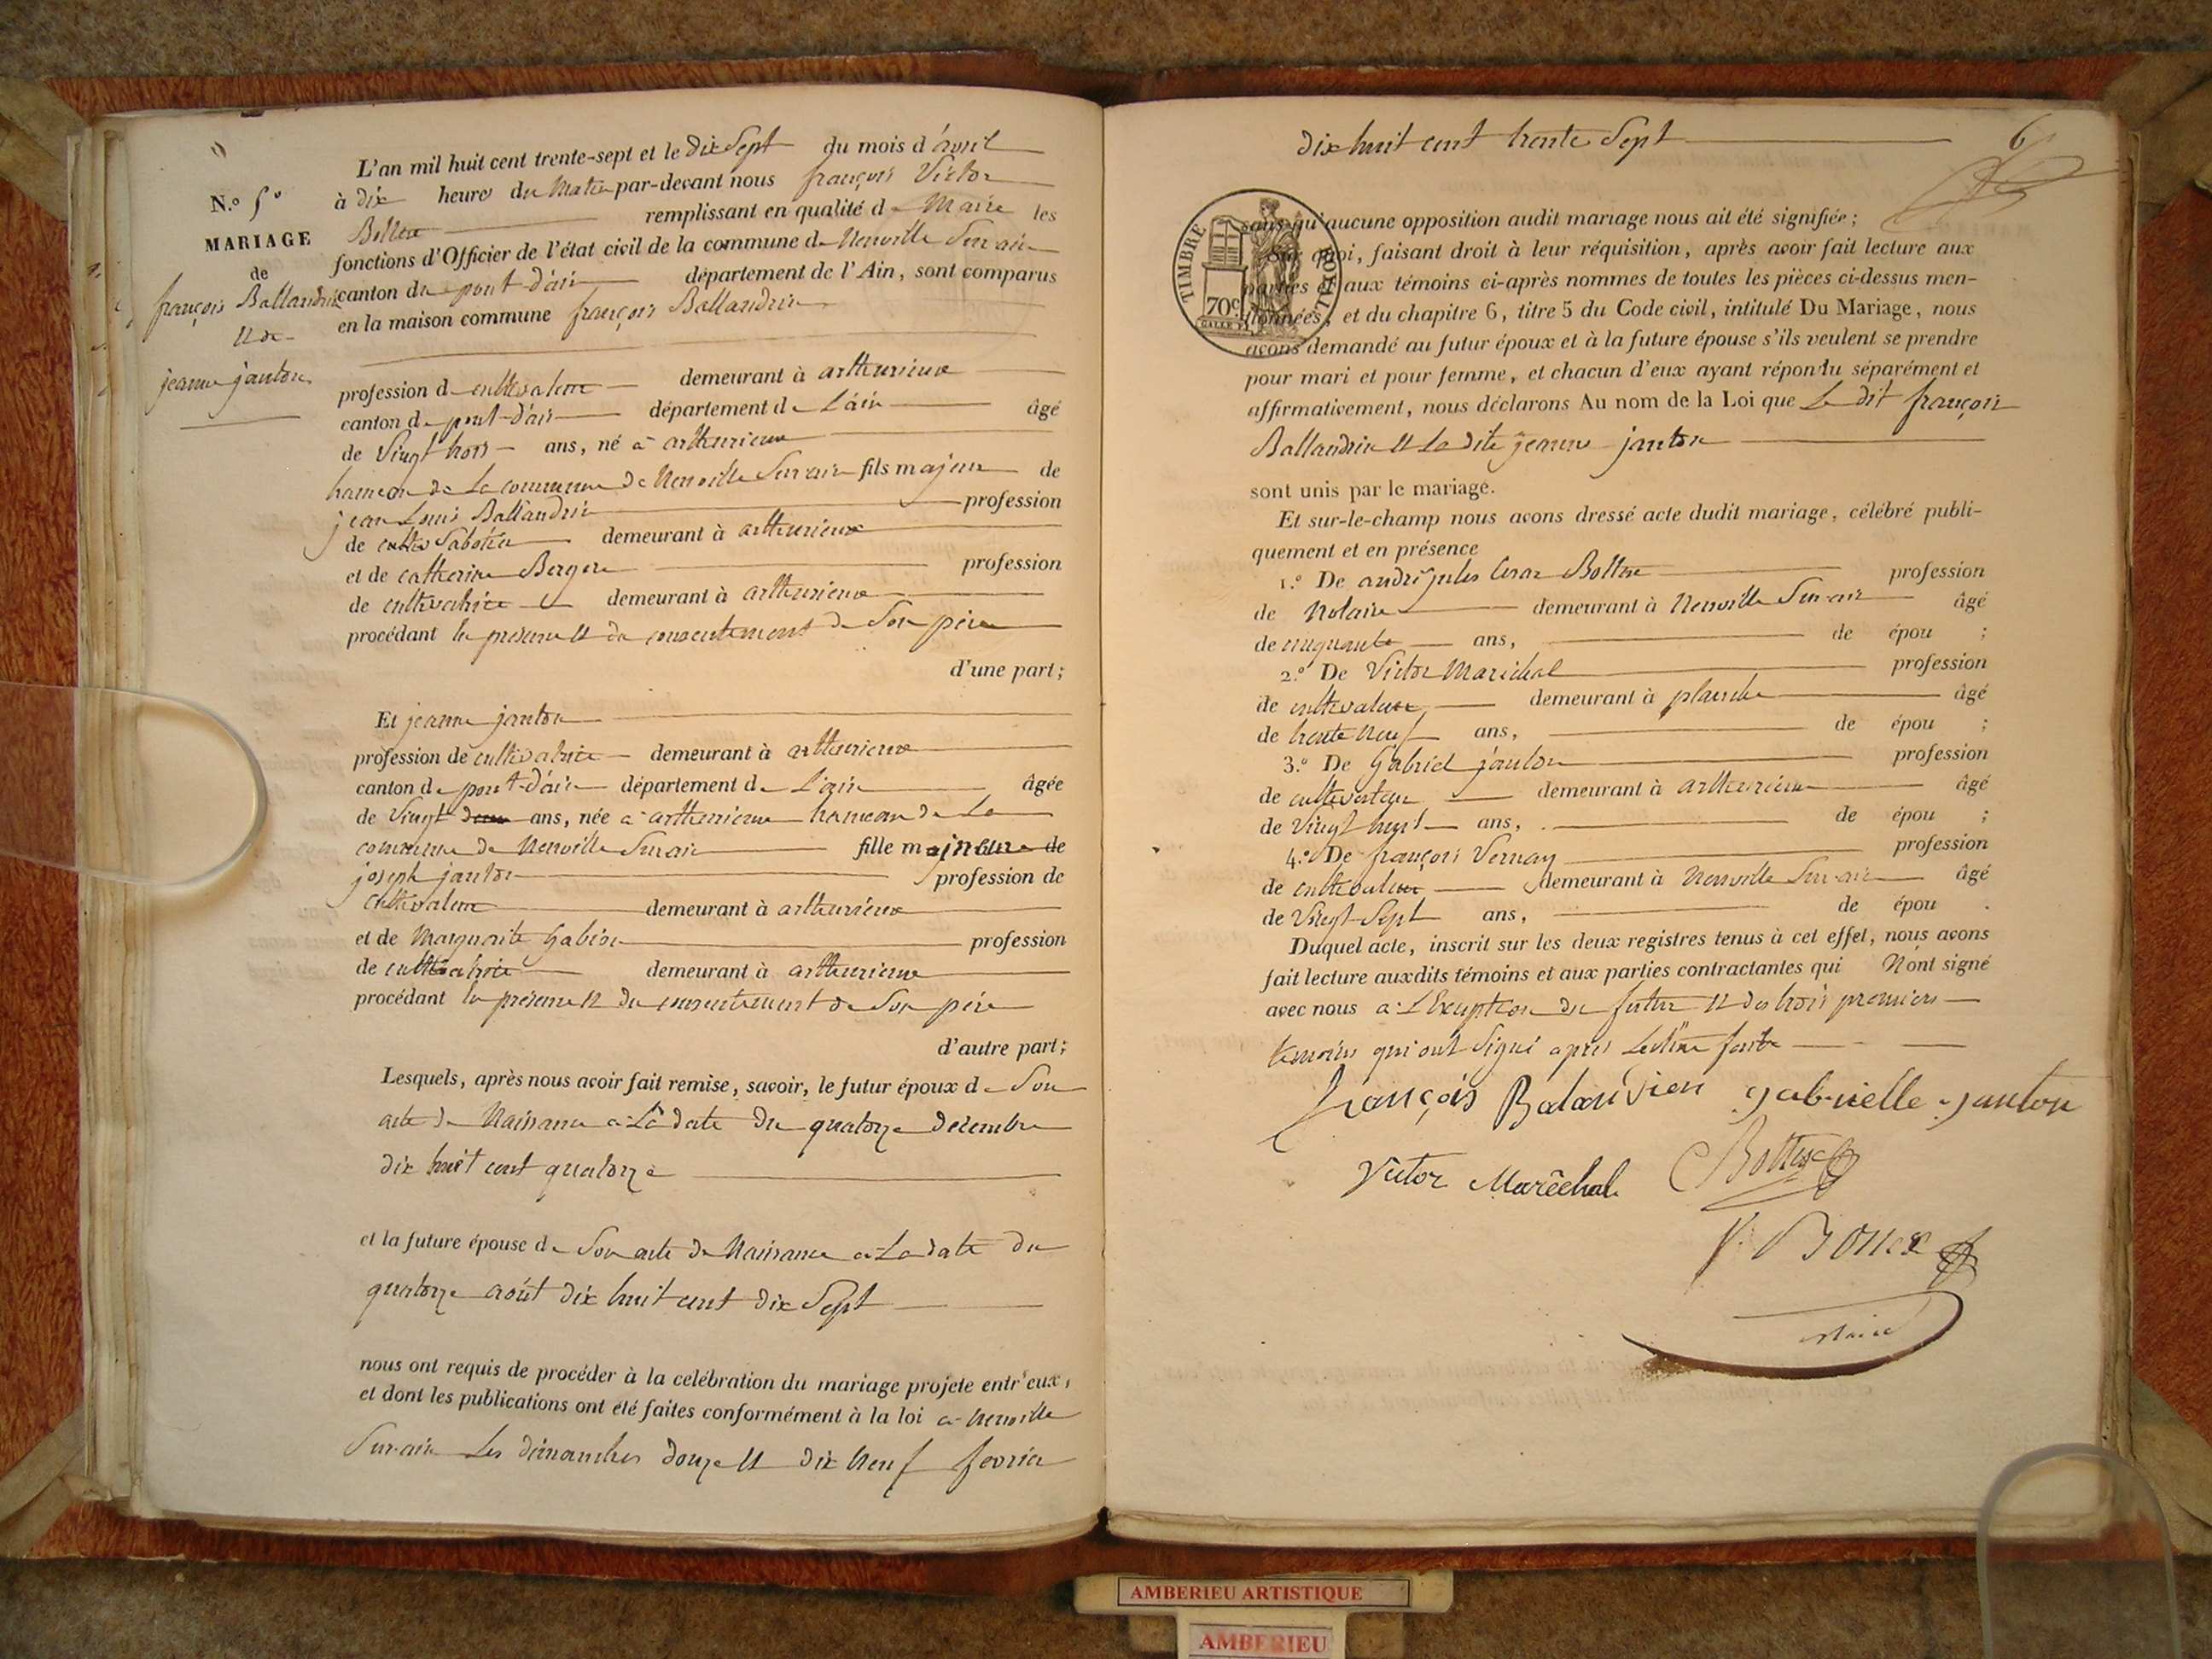 L'an mil huit cent trente-sept et le dix Sept du mois d'avril
N.º 5º
à dix heure du Matin par-devant nous françois Victor
Bottex remplissant en qualité de Maire les
MARIAGE
fonctions d'Officier de l'état civil de la commune de Neuville Sur ain
de
canton du pont-d'ain département de l'Ain, sont comparus
françois Ballandrin
en la maison commune françois Ballandrin
Et de
jeanne janton
profession de cultivateur demeurant à arthurieux
canton de pont-d'ain département de L'ain âgé
de Vingt trois ans, né à arthurieux
hameau de La commune de Neuville Sur ain fils majeur de
jean Louis Ballandrin profession
de Sabotier demeurant à arthurieux
et de catherine Berger profession
de cultivatrice demeurant à arthurieux
procédant En présence Et du consentement de Son père
d'une part;
Et jeanne janton
profession de cultivatrice demeurant à arthurieux
canton de pont-d'ain département de L'ain âgée
de Vingt ans, née à arthurieux hameau de La
commune de Neuville Surain fille mineure de
joseph janton profession de
cultivateur demeurant à arthurieux
et de Marguerite Gabion profession
de cultivatrice demeurant à arthurieux
procédant En présence Et du consentement de Son père
d'autre part;
Lesquels, après nous avoir fait remise, savoir, le futur époux de Son
acte de Naissance à La date du quatorze décembre
dix huit cent quatorze
et la future épouse de Son acte de Naissance à La date du
quatorze août dix huit cent dix Sept
nous ont requis de procéder à la celébration du mariage projeté entr'eux,
et dont les publications ont été faites conformément à la loi à Neuville
Sur-ain Les dimanches douze Et dix Neuf fevrier
dix huit cent trente Sept
6
TIMBRE ROYAL
70 c
sans qu'aucune opposition audit mariage nous ait été signifiée;
Sur quoi, faisant droit à leur réquisition, après avoir fait lecture aux
parties et aux témoins ci-après nommes de toutes les pièces ci-dessus men-
tionnées, et du chapitre 6, titre 5 du Code civil, intitulé Du Mariage, nous
avons demandé au futur époux et à la future épouse s'ils veulent se prendre
pour mari et pour femme, et chacun d'eux ayant répondu séparément et
affirmativement, nous déclarons Au nom de la Loi que Le dit françois
Ballandrin Et La dite jeanne janton
sont unis par le mariage.
Et sur-le-champ nous avons dressé acte dudit mariage, célébré publi-
quement et en présence
1.º De andré jules Cesar Bottex profession
de Notaire demeurant à Neuville Sur-ain âgé
de cinquante ans, de épou ;
2.º De Victor Maréchal profession
de cultivateur demeurant à planche âgé
de trente Neuf ans, de épou ;
3.º De Gabriel janton profession
de cultivateur demeurant à arthurieux âgé
de Vingt huit ans, de épou ;
4.º De françois Vernay profession
de cultivateur demeurant à Neuville Sur-ain âgé
de Vingt-Sept ans, de épou .
Duquel acte, inscrit sur les deux registres tenus à cet effet, nous avons
fait lecture auxdits témoins et aux parties contractantes qui N'ont signé
avec nous à L'Exception du futur Et des trois premiers
temoins qui ont Signé après Lecture faite
françois Balandrin gabrielle janton
Victor Maréchal Bottex
V. Bottex
Maire
AMBERIEU ARTISTIQUE
AMBERIEU